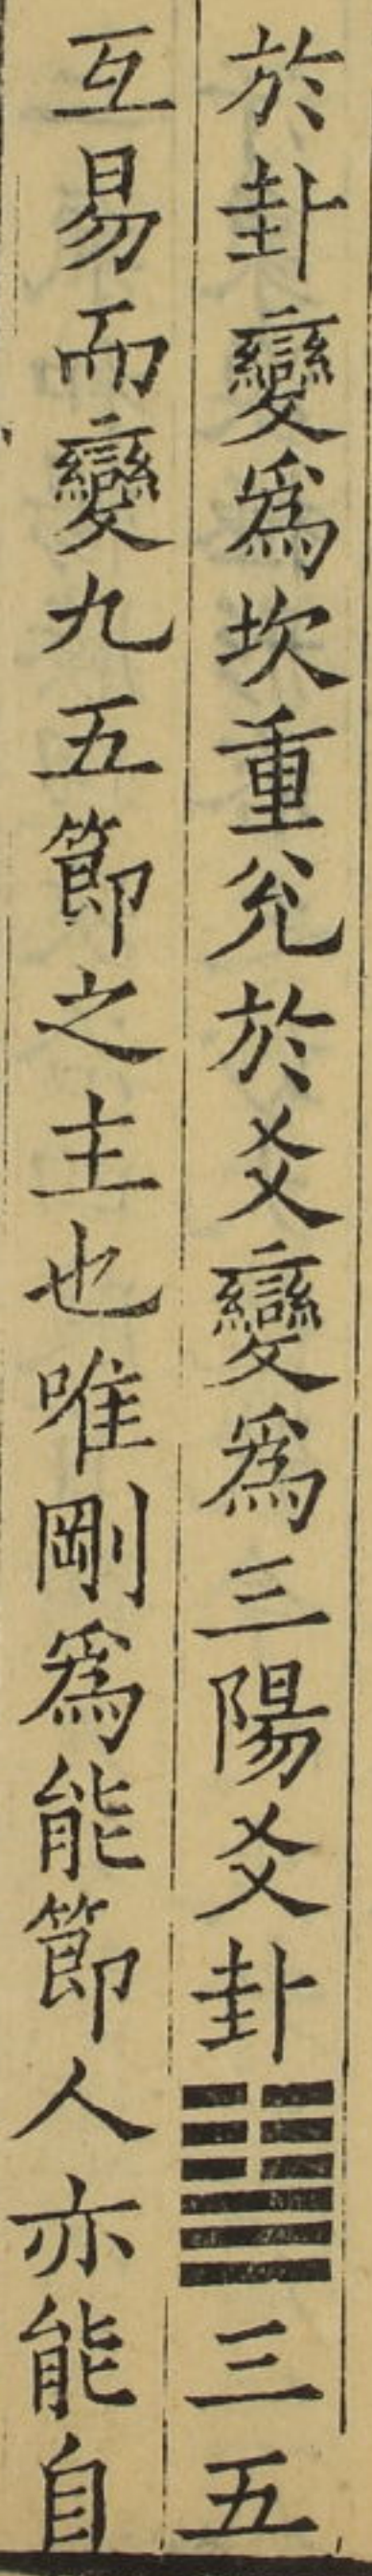 於卦變爲坎重兊於爻變爲三陽爻卦䷊三五
互易而變九五節之主也唯剛爲能節人亦能自